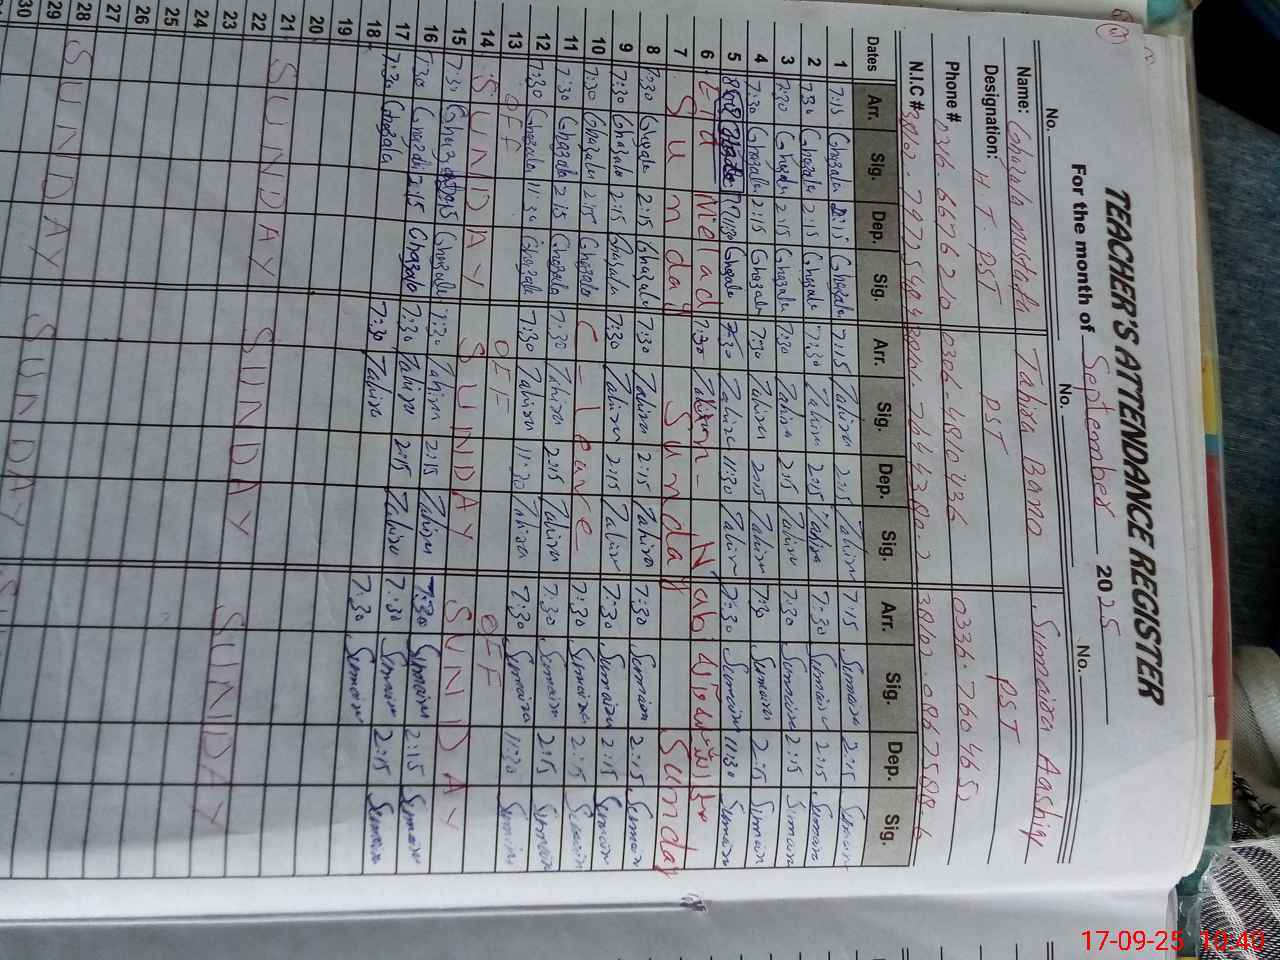 TEACHER'S ATTENDANCE REGISTER
For the month of September 2025
No. No. No.
Name: Ghazala Mustafa Tahira Bano Sumaira Aashiq
Designation: H.T. PST PST PST
Phone # 0306-4810436
N.I.C #
Dates Arr. Sig. Dep. Sig. Arr. Sig. Dep. Sig. Arr. Sig. Dep. Sig.
1 7:15 Ghazala 2:15 Ghazala 7:15 Tahira 2:15 Tahira 7:15 Sumaira 2:15 Sumaira
2 7:30 Ghazala 2:15 Ghazala 7:30 Tahira 2:15 Tahira 7:30 Sumaira 2:15 Sumaira
3 7:30 Ghazala 2:15 Ghazala 7:30 Tahira 2:15 Tahira 7:30 Sumaira 2:15 Sumaira
4 7:30 Ghazala 2:15 Ghazala 7:30 Tahira 2:15 Tahira 7:30 Sumaira 2:15 Sumaira
5 11:30 Ghazala 7:30 Tahira 11:30 Tahira 7:30 Sumaira 11:30 Sumaira
6 Eid Melad un-Nabi
7 Sunday Sunday Sunday
8 7:30 Ghazala 2:15 Ghazala 7:30 Tahira 2:15 Tahira 7:30 Sumaira 2:15 Sumaira
9 7:30 Ghazala 2:15 Ghazala 7:30 Tahira 2:15 Tahira 7:30 Sumaira 2:15 Sumaira
10 7:30 Ghazala 2:15 Ghazala C-leave 7:30 Sumaira 2:15 Sumaira
11 7:30 Ghazala 2:15 Ghazala 7:30 Tahira 2:15 Tahira 7:30 Sumaira 2:15 Sumaira
12 7:30 Ghazala 11:30 Ghazala 7:30 Tahira 11:30 Tahira 7:30 Sumaira 11:30 Sumaira
13 OFF OFF OFF
14 SUNDAY SUNDAY SUNDAY
15 7:30 Ghazala 2:15 Ghazala 7:30 Tahira 2:15 Tahira 7:30 Sumaira 2:15 Sumaira
16 7:30 Ghazala 2:15 Ghazala 7:30 Tahira 2:15 Tahira 7:30 Sumaira 2:15 Sumaira
17 7:30 Ghazala 7:30 Tahira 7:30 Sumaira
18
19
20
21 SUNDAY SUNDAY SUNDAY
22
23
24
25
26
27
28 SUNDAY SUNDAY
29
30
17-09-25 10:40